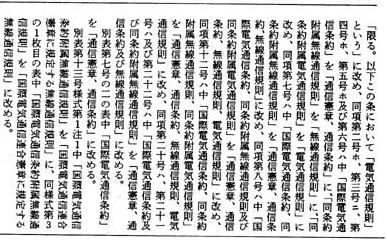 「限る。以下この条において「電気通信規則」
という」に改め、同項第三号ニ、第
四号ホ、第五号ホ及び第六号ハ中「国際電気通信
条約」を「通信憲章、通信条約」に、「同条約
附属無線通信規則」を「無線通信規則」に、「同
条約附属電気通信規則」を「電気通信規則」に
改め、同項第七号ハ中「国際電気通信条約、同
条約附属無線通信規則」を「通信憲章、通信条
約、無線通信規則」に改め、同項第八号ハ中「国
際電気通信条約、同条約附属無線通信規則及び
同条約附属電気通信規則」を「通信憲章、通信
条約、無線通信規則、電気通信規則」に改め、
同項第十二号ハ中「国際電気通信条約、同条約
附属無線通信規則、同条約附属電気通信規則」
を「通信憲章、通信条約、無線通信規則、電気
通信規則」に改め、同項第二十号ハ、第二十一
号ハ及び第二十二号ハ中「国際電気通信条約及
び同条約附属無線通信規則」を「通信憲章、通
信条約及び無線通信規則」に改める。
別表第七号の二の表中「国際電気通信条約」
を「通信憲章、通信条約」に改める。
別表第十三号様式第1注1中「国際電気通信
条約附属無線通信規則」を「国際電気通信連合
憲章に規定する無線通信規則」に、同様式第3
の1枚目の表中「国際電気通信条約附属無線通
信規則」を「国際電気通信連合憲章に規定する
無線通信規則」に改める。